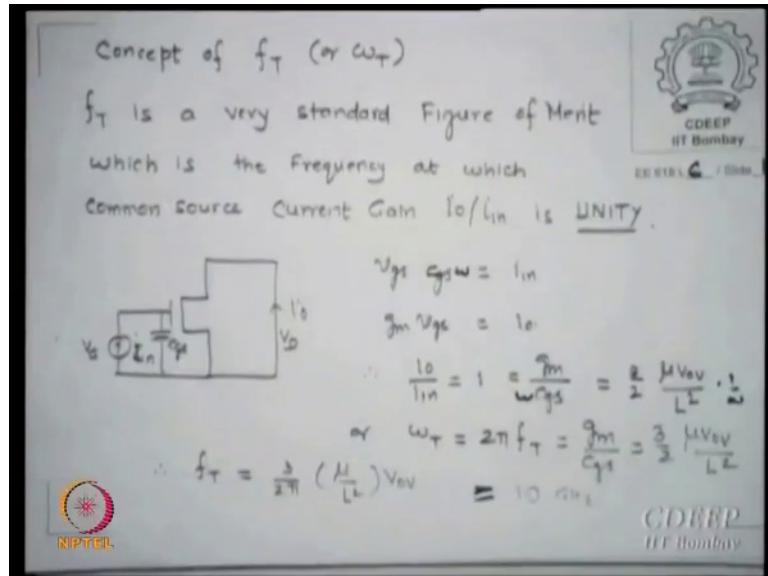 Concept of fT (or ωT)
fT is a very standard Figure of Merit
which is the Frequency at which
Common Source Current Gain Io/Iin is UNITY.
CDEEP
IIT Bombay
EE 618 L 6 / Slide
Vgs Cgs ω = Iin
gm Vgs = Io
∴ Io/Iin = 1 = gm/ωCgs = μVov/L² ·
or ωT = 2πfT = gm/Cgs = 3/2 μVov/L²
∴ fT = 3/2π (μ/L²) Vov = 10
Io
VD
Iin
Cgs
NPTEL
CDEEP
IIT Bombay